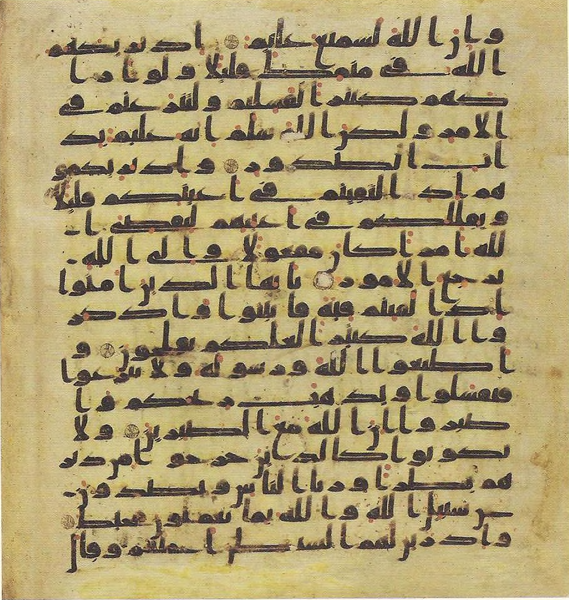 وان الله لسميع عليم اذ يريكهم
الله في منمك قليلا ولو ارا
كهم كثيرا لفشلتم ولتنزعتم في
الامر ولكن الله سلم انه عليم بذ
ات الصدور واذ يريكمو
هم اذ التقيتم في اعينكم قليلا
ويقللكم في اعينهم ليقضي ا
لله امرا كان مفعولا والى الله
ترجع الامور يايها الذين امنوا
اذا لقيتم فئة فاثبتوا واذكر
وا الله كثيرا لعلكم تفلحون و
اطيعوا الله ورسوله ولا تنزعوا
فتفشلوا وتذهب ريحكم وا
صبروا ان الله مع الصبرين ولا
تكونوا كالذين خرجوا من دير
هم بطرا ورئا الناس ويصدون
عن سبيل الله والله بما يعملون محيط
واذ زين لهم الشيطن اعملهم وقال